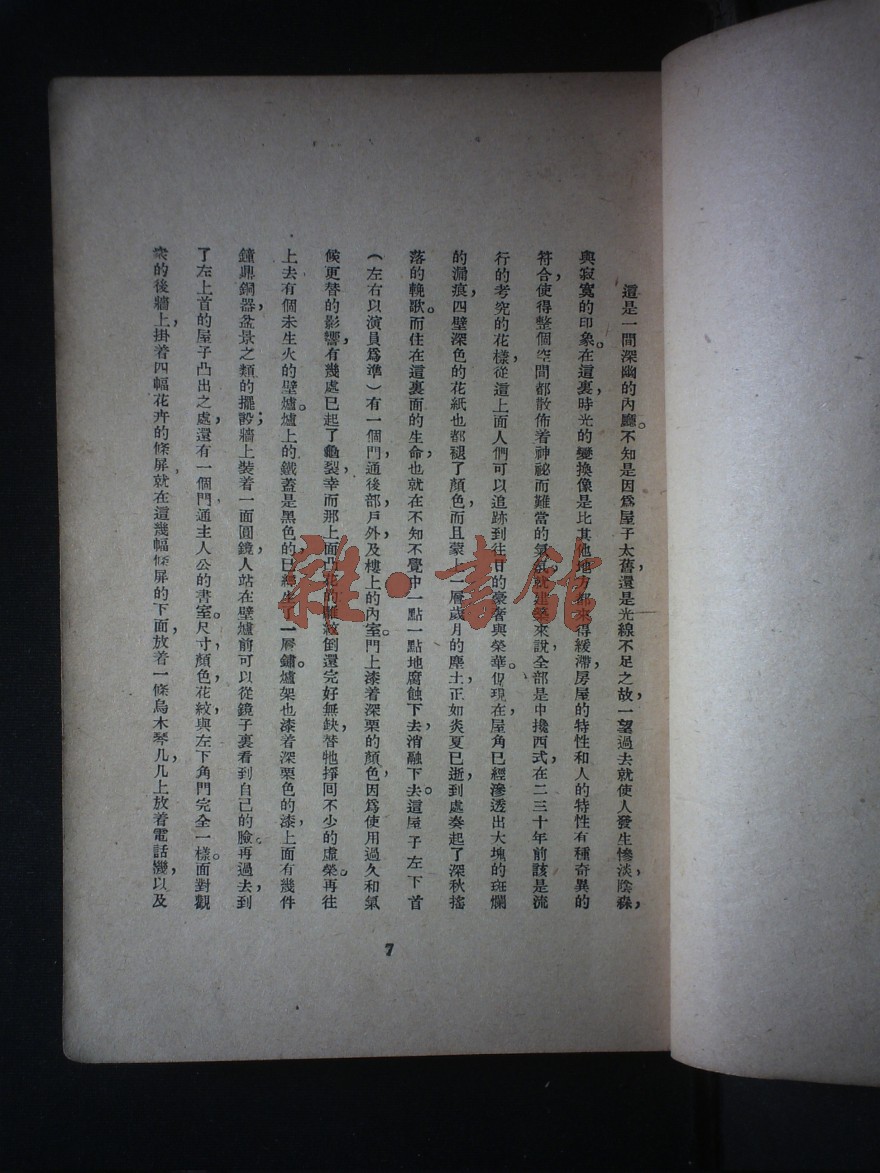 這是一間深幽的內廳。不知是因爲屋子太舊，還是光線不足之故，一望過去就使人發生慘淡，陰森，
與寂寞的印象。在這裏，時光的變換像是比其他地方都來得緩滯，房屋的特性和人的特性有種奇異的
符合，使得整個空間都散佈着神祕而難當的氣氛。就建築來說，全部是中攙西式，在二三十年前該是流
行的考究的花樣，從這上面人們可以追跡到往日的豪奢與榮華。但現在，屋角已經滲透出大塊的斑爛
的漏痕，四壁深色的花紙也都褪了顏色，而且蒙上一層歲月的塵土，正如炎夏已逝，到處奏起了深秋搖
落的輓歌。而住在這裏面的生命，也就在不知不覺中一點一點地腐蝕下去，消融下去。這屋子左下首
（左右以演員爲準）有一個門，通後部，戶外，及樓上的內室。門上漆着深栗的顏色，因爲使用過久和氣
候更替的影響，有幾處已起了龜裂，幸而那上面凸花的雕紋倒還完好無缺，替牠掙回不少的虛榮。再往
上去有個未生火的壁爐。爐上的鐵蓋是黑色的，已經生了一層鏽。爐架也漆着深栗色的漆，上面有幾件
鐘鼎銅器，盆景之類的擺設；牆上裝着一面圓鏡，人站在壁爐前可以從鏡子裏看到自己的臉。再過去，到
了左上首的屋子凸出之處，還有一個門通主人公的書室。尺寸，顏色，花紋，與左下角門完全一樣。面對觀
衆的後牆上，掛着四幅花卉的條屏，就在這幾幅條屏的下面，放着一條烏木琴几，几上放着電話機，以及
7
雜·書館